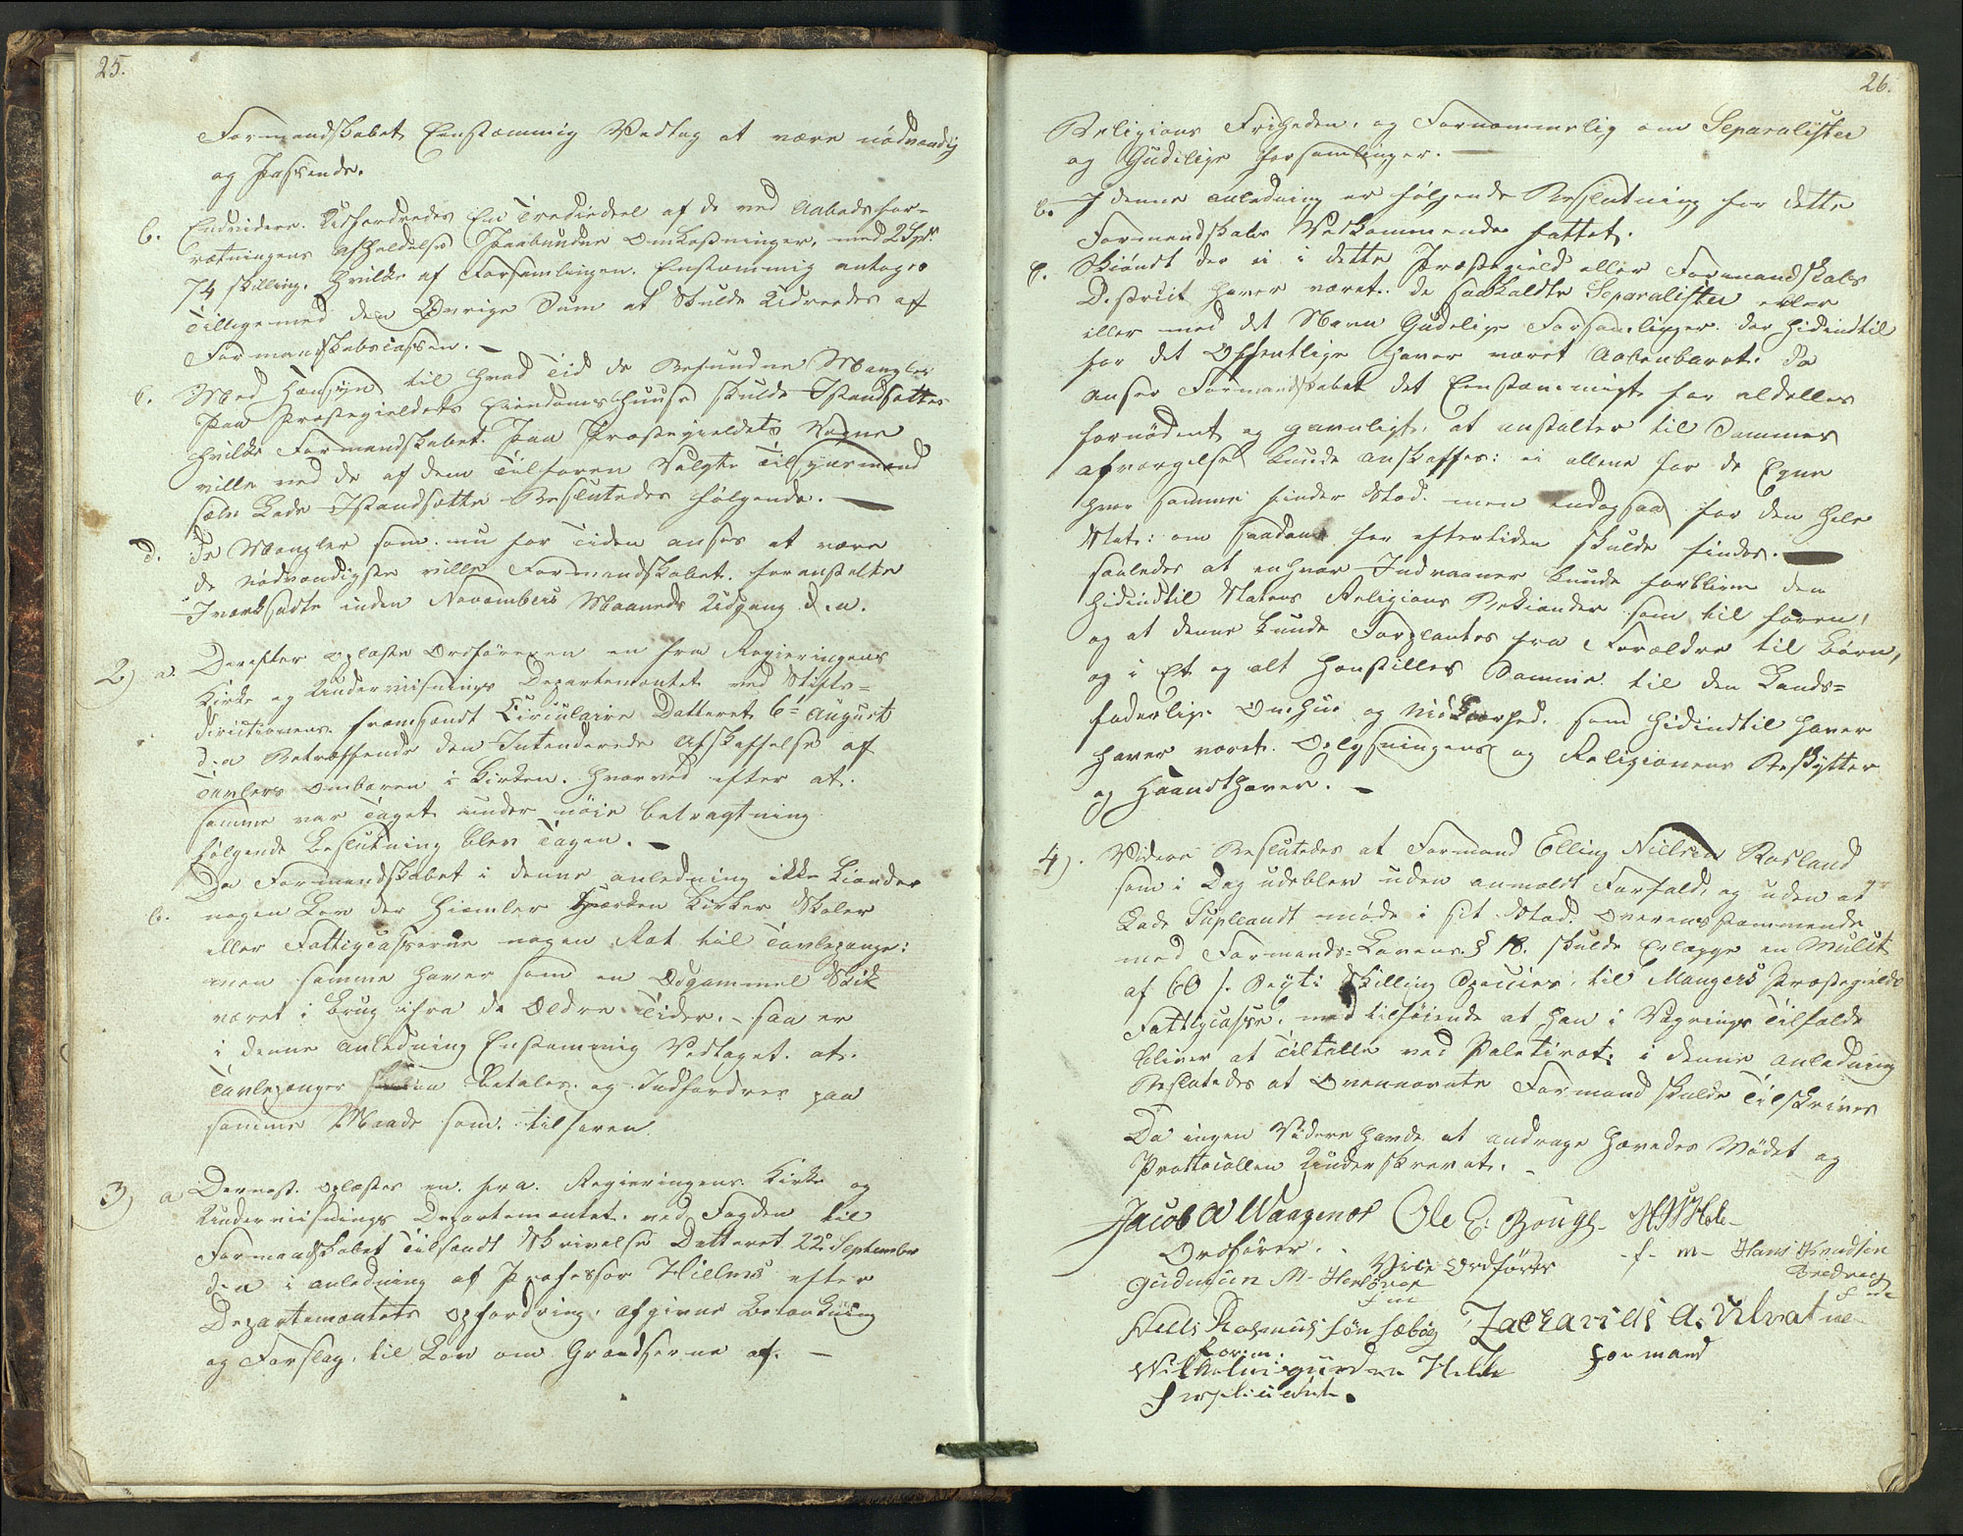 25.
Formandskabet Eenstæmmig Vedtag at være nödvændig
og Passende.
b. Endvidere Udfordredes En Trediedeel af de ved Aabodsfor-
retningens Afholdelse Paabundne Omkostninger, med 2 Spd.
74 skilling. Hvilke af Forsamlingen Enstæmmig antoges
Tilligemed den Övrige Sum at skulde Udredes af
Formandskabscassen. -
c. Med Hensyn til hvad Tid de Befundne Mangler
Paa Præstegieldets Eiendoms Huuse skulde Istandsettes
Hvilke Formandskabet Paa Præstegieldets Vegne
ville ved de af dem Tilforen Valgte Tilsynsmænd
selv Lade Istandsætte Besluttedes følgende. -
d. De Mangler som nu for Tiden anses at være
de Nödvændigste ville Formandskabet foranstalte
Iværksadte inden Novembers Maaneds Udgang d. a.
2) a. Derefter oplæste Ordföreren en fra Regieringens
Kirke og Underviisnings Departementet ved Stifts-
directionen fremsendt Circulaire Datteret 6te August
d. a Betræffende den Intenderede Afskaffelse af
Tavlers ombæren i Kirken. Hvorved efter at
samme var Taget under nöie betragtning
følgende Beslutning blev Tagen. -
b. Da Formandskabet i denne anledning ikke Kiender
nogen Lov der Hiemler Hverken Kirker Skoler
eller Fattigcasserne nogen Ret til Tavlepenge:
men samme haver som en Odgammel Skik
været i Brug ifra de Ældre Tider. - saa er
i denne Anledning Enstemmig Vedtaget at.
Tavlepenger Betales og Indfordres paa
samme Maade som tilforen.
3) a Dernest oplæstes en fra Regieringens Kirke og
Underviisnings Departementet ved Fogden til
Formandskabet Tilsendt Skrivelse Datteret 22de September
d. a i anledning af Professor Hielms efter
Departementets opfordring, afgivne Betænkning
og Forslag, til Lov om Grændserne af. -
26.
Religions Friheden, og Fornemmelig om Separatister
og Gudelige forsamlinger. -
b. I denne anledning er følgende Beslutning for dette
Formandskabs Vedkommende fattet.
c. Skiöndt der ei i dette Præstegield eller Formandskabs
District haver været de saakaldte Separatister eller
eller med det Navn Gudelige Forsamlinger der hidindtil
for det Offentlige haver været Aabenbaret. Da
anser Formandskabet det Eenstæmmigt for aldelles
fornödent og gavnligt, at anstalter til Sammes
afværgelse kunde anskaffes: ei allene for de Egne
hvor samme finder Sted. men endogsaa for den hele
Stat: om saadane for eftertiden skulde findes. -
saaledes at enhver Indvaaner kunde forblive den
hidindtil Statens Religions Bekiender som til foren,
og at denne kunde Forplantes fra Forældre til Börn,
og i Et og alt Henstilles Samme til den Lands-
faderlige Omhue og Nidkierhed. som hidindtil haver
haver været Oplysningens og Religionens Beskytter
og Haandthæver. -
4). Videre Besluttedes at Formand Elling Nielsen Rosland
som i Dag udeblev uden anmeldt Forfald, og uden at
Lade Supleandt möde i sit Sted. Overensstemmende
med Formands-Lovens § 18. skulde Erlægge en Mulct
af 60 s. Sexti Skilling Species, til Mangers Præstegields
Fattigcasse. med tilföiende at han i Vægrings Tilfælde
bliver at Tiltalle ved Poletiret: i denne anledning
Besluttedes at Ovennævnte Formand skulde Tilskrives
Da ingen Videre havde at andrage hævedes Mödet og
Prottocollen Underskrevet. -
Jacob A Waagenes Ole E: Bouge H N Hole
Ordförer. Vice Ordförer f- m- Hans Knudsen
Gudmun M- Bredvig
f m
Niels Rasmus sön sæbög Zacharias A.
Form. formand
Helle
supliant.